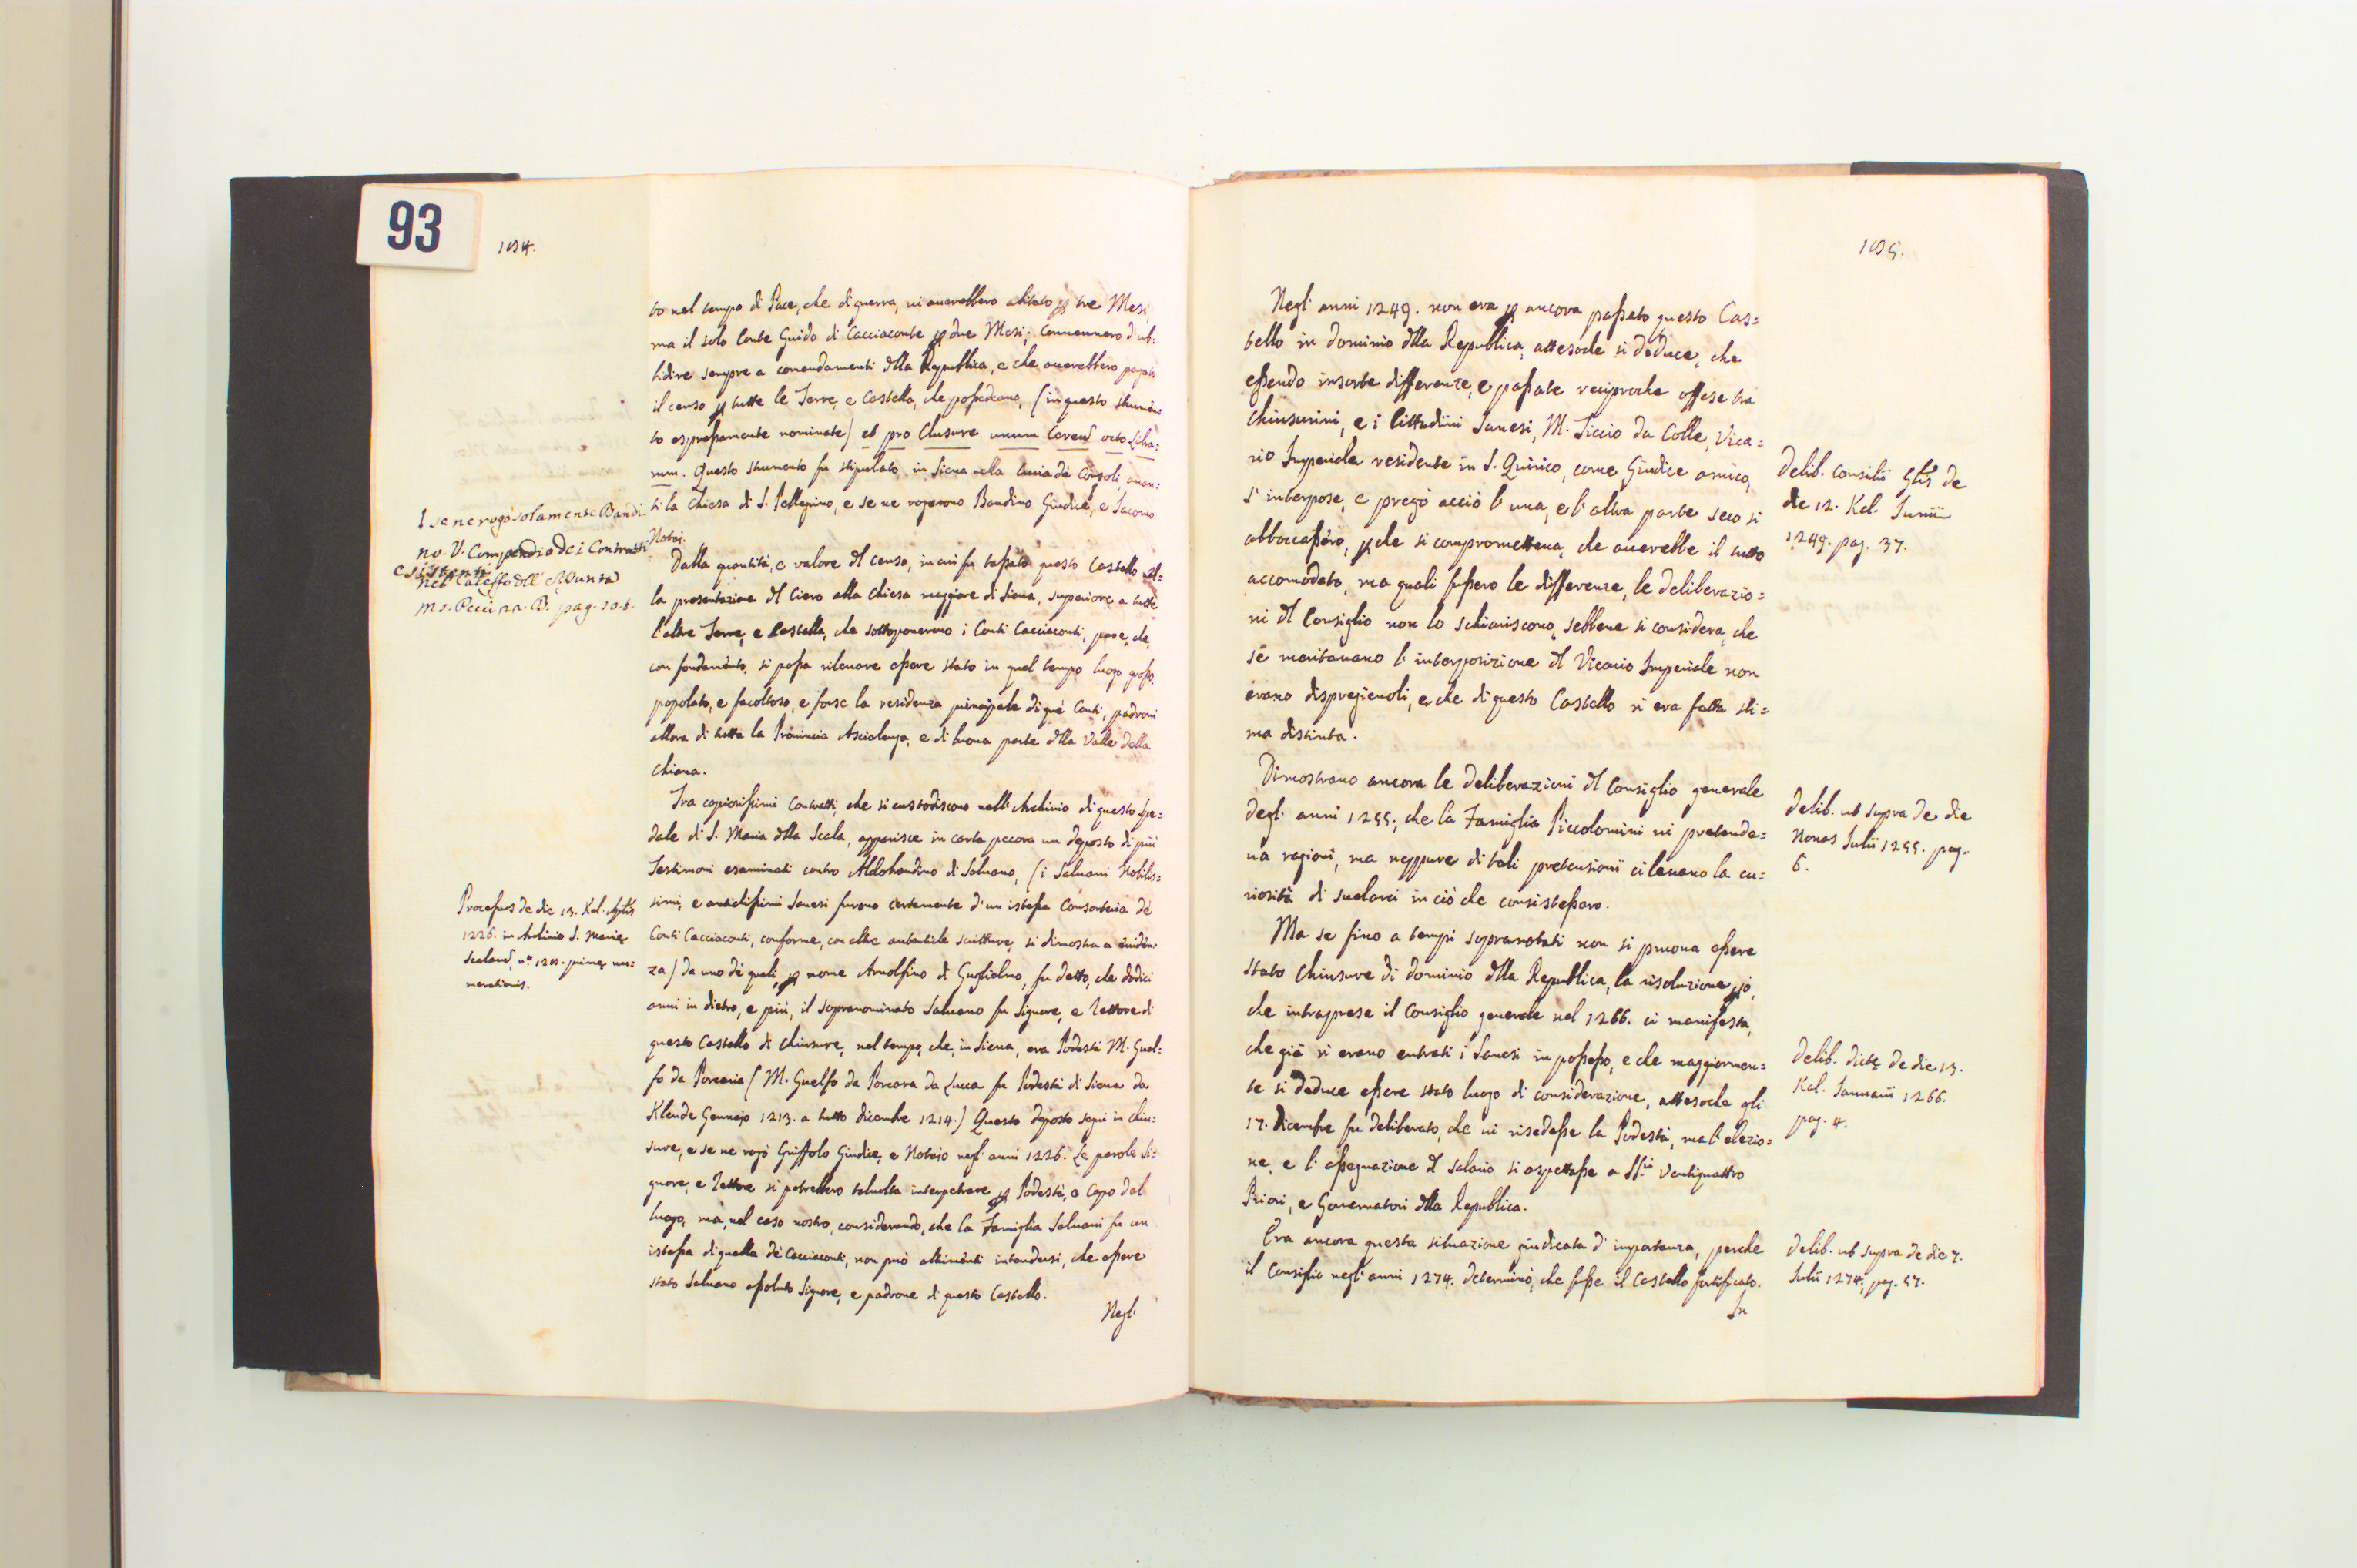 93
to nel tempo di Pace, che di guerra, vi auerebbero abitato ꝑ tre Mesi,
ma il solo Conte Guido di Cacciaconte ꝑ due Mesi; Conuennero d'ub:
bidire sempre a comandamenti dlla Republica, e che auerebbero pagato
il censo ꝑ tutte le Terre, e Castella, che possedeano, (in questo strumen:
to espressamente nominate) et pro Clusure unum Cereũ octo Libra:
rum. Questo strumento fu stipulato in Siena nella Curia dè Consoli, auan:
ti la Chiesa di S. Pellegrino, e se ne rogorono Bandino Giudice, e Iacomo
Notai.
Dalla quantità, e valore dl censo, in cui fu tassato questo Castello nel:
la presentazione dl Ciero alla Chiesa maggiore di Siena, superiore a tutte
l'altre Terre, e Castella, che sottoponerono i Conti Cacciaconti, pare, che,
con fondamento, si possa rileuare essere stato in quel tempo luogo grosso,
popolato, e facoltoso, e forse la residenza principale di què Conti, padroni
allora di tutta la Prouincia Ascialenga, e di buona parte dlla Valle della
chiana.
Tra copiosissimi Contratti, che si custodiscono nell'Archiuio di questo Spe:
dale di S. Maria dlla Scala, apparisce in carta pecora un deposto di più
Testimoni esaminati contro Aldobandino di Saluano, (i Saluani Nobilis:
simi, e antichissimi Sanesi furono certamente d'un istessa Consorteria dè
Conti Cacciaconti, conforme, con altre autentiche scritture, si dimostra a euiden:
za) da uno dè quali, ꝑ nome Arnolfino di Guglielmo, fu detto, che dodici
anni in dietro, e più, il sopranominato Saluano fu Signore, e Rettore di
questo Castello di Chiusure, nel tempo, che, in Siena, era Podestà M. Guel:
fo da Porcaria (M. Guelfo da Porcara da Lucca fu Podestà di Siena da
Klende Gennajo 1213. a tutto dicembre 1214.) Questo deposto seguì in Chiu:
sure, e se ne rogò Griffolo Giudice, e Notaio negl'anni 1226. Le parole Si:
gnore, e Rettore si potrebbero taluolta interpetrare ꝑ Podestà, o Capo del
luogo, ma, nel caso nostro, considerando, che la Famiglia Saluani fu un
istessa di quella dè Cacciaconti, non può altrimenti intendersi, che essere
stato Saluano assoluto Signore, e padrone di questo Castello.
Negl'
1 se ne rogo solamente Bandi
no. V. Compendio dei Contratti
esistenti
nell Caleffo dll'Assunta
ms. Pecci n. D. pag. 20.t.
Processus de die 13. Kal. Aptis
1226. in Archiuio S. Marię
Scalarũ, n.º 1200. primę nu:
merationis.
Negl'anni 1249. non era ꝑ ancora passato questo Cas:
tello in dominio dlla Republica, attesoche si deduce, che
essendo insorte differenze, e passate reciproche offese tra
Chiusurini, e i Cittadini Sanesi, M. Ticcio da Colle, Vica:
rio Imperiale residente in S. Quirico, come Giudice amico,
s'interpose, e pregò acciò l'una, e l'altra parte seco si
abboccassero, ꝑche si comprometteua, che auerebbe il tutto
accomodato, ma quali fussero le differenze, le deliberazio:
ni dl Consiglio non lo schiariscono, sebbene si considera, che
se meritauano l'interposizione dl Vicario Imperiale non
erano dispregieuoli, e che di questo Castello si era fatta sti:
ma distinta.
Dimostrano ancora le deliberazioni dl Consiglio generale
degl'anni 1255., che la Famiglia Piccolomini vi pretende:
ua ragioni, ma neppure di tali pretensioni ci leuano la cu:
riosità di suelarci in ciò che consistessero.
Ma se fino a tempi sopranotati non si pruoua essere
stato Chiusure di dominio dlla Republica, la risoluzione ꝑò,
che intraprese il Consiglio generale nel 1266. ci manifesta,
che già vi erano entrati i Sanesi in possesso, e che maggiormen:
te si deduce essere stato luogo di considerazione, attesoche gli
17. Dicembre fu deliberato, che vi risedesse la Podestà, ma l'elezio:
ne, e l'assegnazione dl salario si aspettasse a SS.ri Ventiquattro
Priori, e Gouernatori dlla Republica.
Era ancora questa situazione giudicata d'importanza, perche
il Consiglio negl'anni 1274. determinò, che fusse il Castello fortificato.
In
Delib. Consilii Glis de
die 12. Kal. Junii
1249. pag. 37.
Delib. ut supra de die
Nonas Julii 1255. pag.
6.
Delib. dictę de die 13.
Kal. Januarii 1266.
pag. 4.
Delib. ut supra de die 7.
Julii 1274. pag. 57.